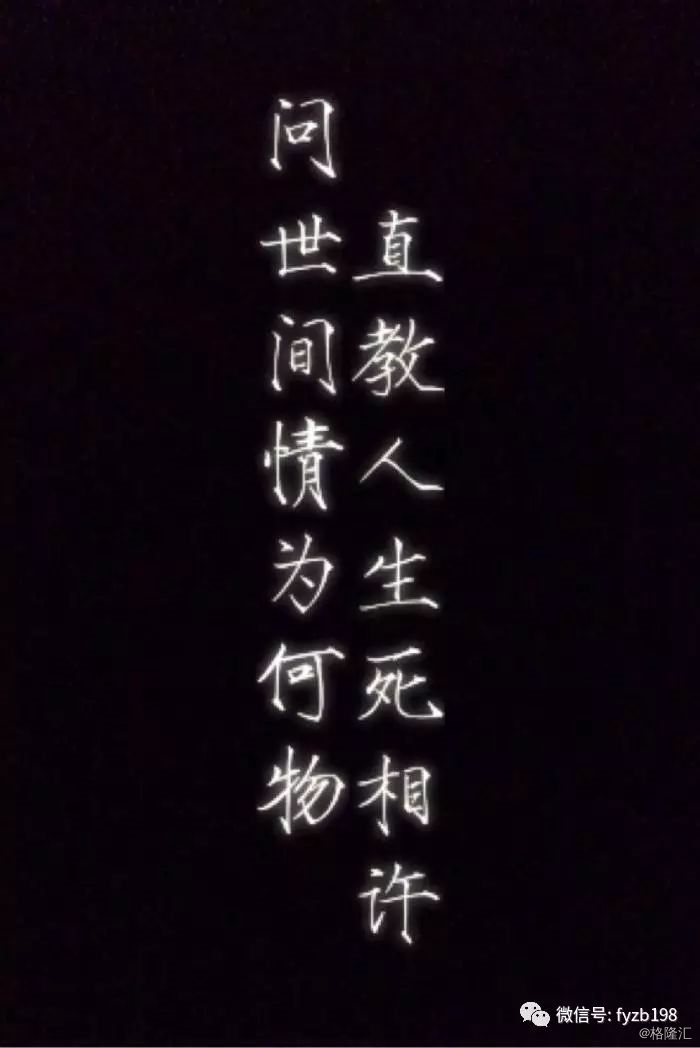 问世间情为何物
直教人生死相许
微信号: fyzb198
@格隆汇